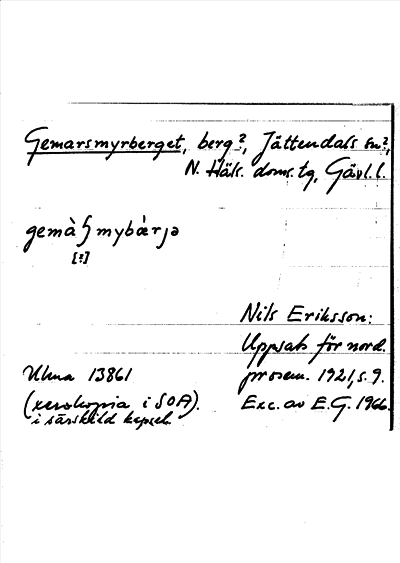 Gemarsmyrberget, berg?, Jättendals sn?,
N. Häls. doms.tg, Gävl.l.
gemàʃmybàrjə
[:]
Nils Eriksson:
Uppsats för nord.
Ulma 13861
prosem. 1921, s. 9.
(xerokopia i SOA).
Exc. av E.G. 1966.
i särskild kapsel.